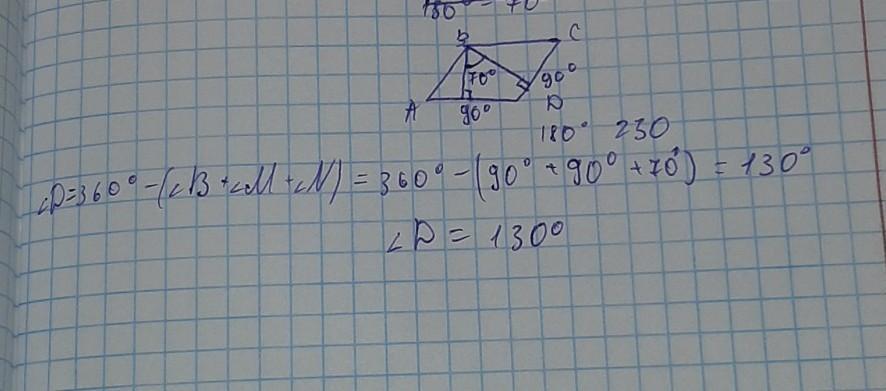 180° 70
B C
70° 90°
A 90° D
180° 230
∠D=360°-(∠B+∠M+∠N)=360°-(90°+90°+70°)=130°
∠D=130°